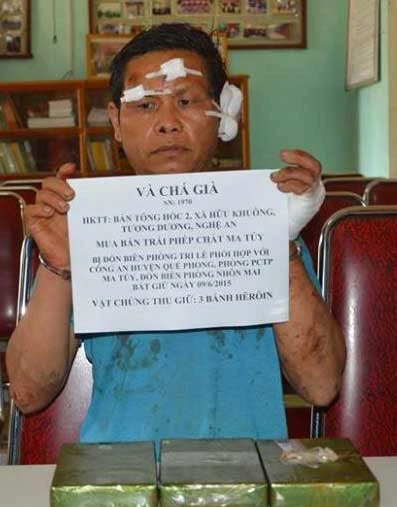 VÀ CHẢ GIÀ
SN: 1970
HKTT: BẢN TỔNG HỐC 2, XÃ HỮU KHUÔNG,
TƯƠNG DƯƠNG, NGHỆ AN
MUA BÁN TRÁI PHÉP CHẤT MA TÚY
BỊ ĐỒN BIÊN PHÒNG TRI LỄ PHỐI HỢP VỚI
CÔNG AN HUYỆN QUẾ PHONG, PHÒNG PCTP
MA TÚY, ĐỒN BIÊN PHÒNG NHÔN MAI
BẮT GIỮ NGÀY 09/6/2015
VẬT CHỨNG THU GIỮ: 3 BÁNH HÊRÔIN